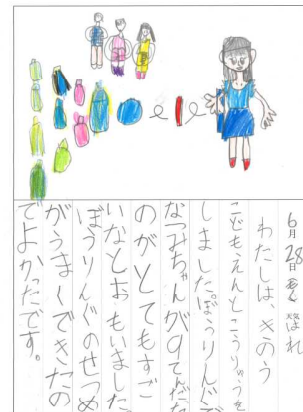 6月28日 はれ
わたしは、きのう
こどもえんとこうりゅうを
しました。ぼうりんぐで
なつみちゃんが9てんだった
のがとてもすご
いなとおもいました
ぼうりんぐのせつめ
がうまくできたの
でよかったです。